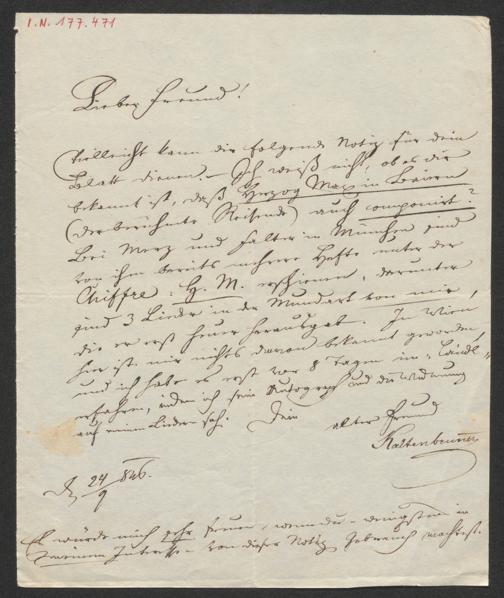 I.N. 177.471
Lieber Freund!
Vielleicht kann dir folgende Notiz für dein
Blatt dienen. – Ich weiß nicht, ob es dir
bekannt ist, daß Herzog Max in Baiern
(der berühmte Reisende) auch componirt?
Bei Merz und Falter in München sind
von ihm bereits mehrere Hefte unter der
Chiffre: H. M. erschienen, darunter
sind 3 Lieder in der Mundart von mir,
die er erst heuer herausgab. In Wien
hier ist mir nichts davon bekannt geworden,
und ich habe es erst vor 8 Tagen im
erfahren, indem ich sein Autograph und die Widmung
auf meine Lieder sah. Dein
alter Freund
Kaltenbrunner
24/9 846.
Es würde mich sehr freuen, wenn du – wenigstens in
meinem Interesse – von dieser Notiz Gebrauch machtest.